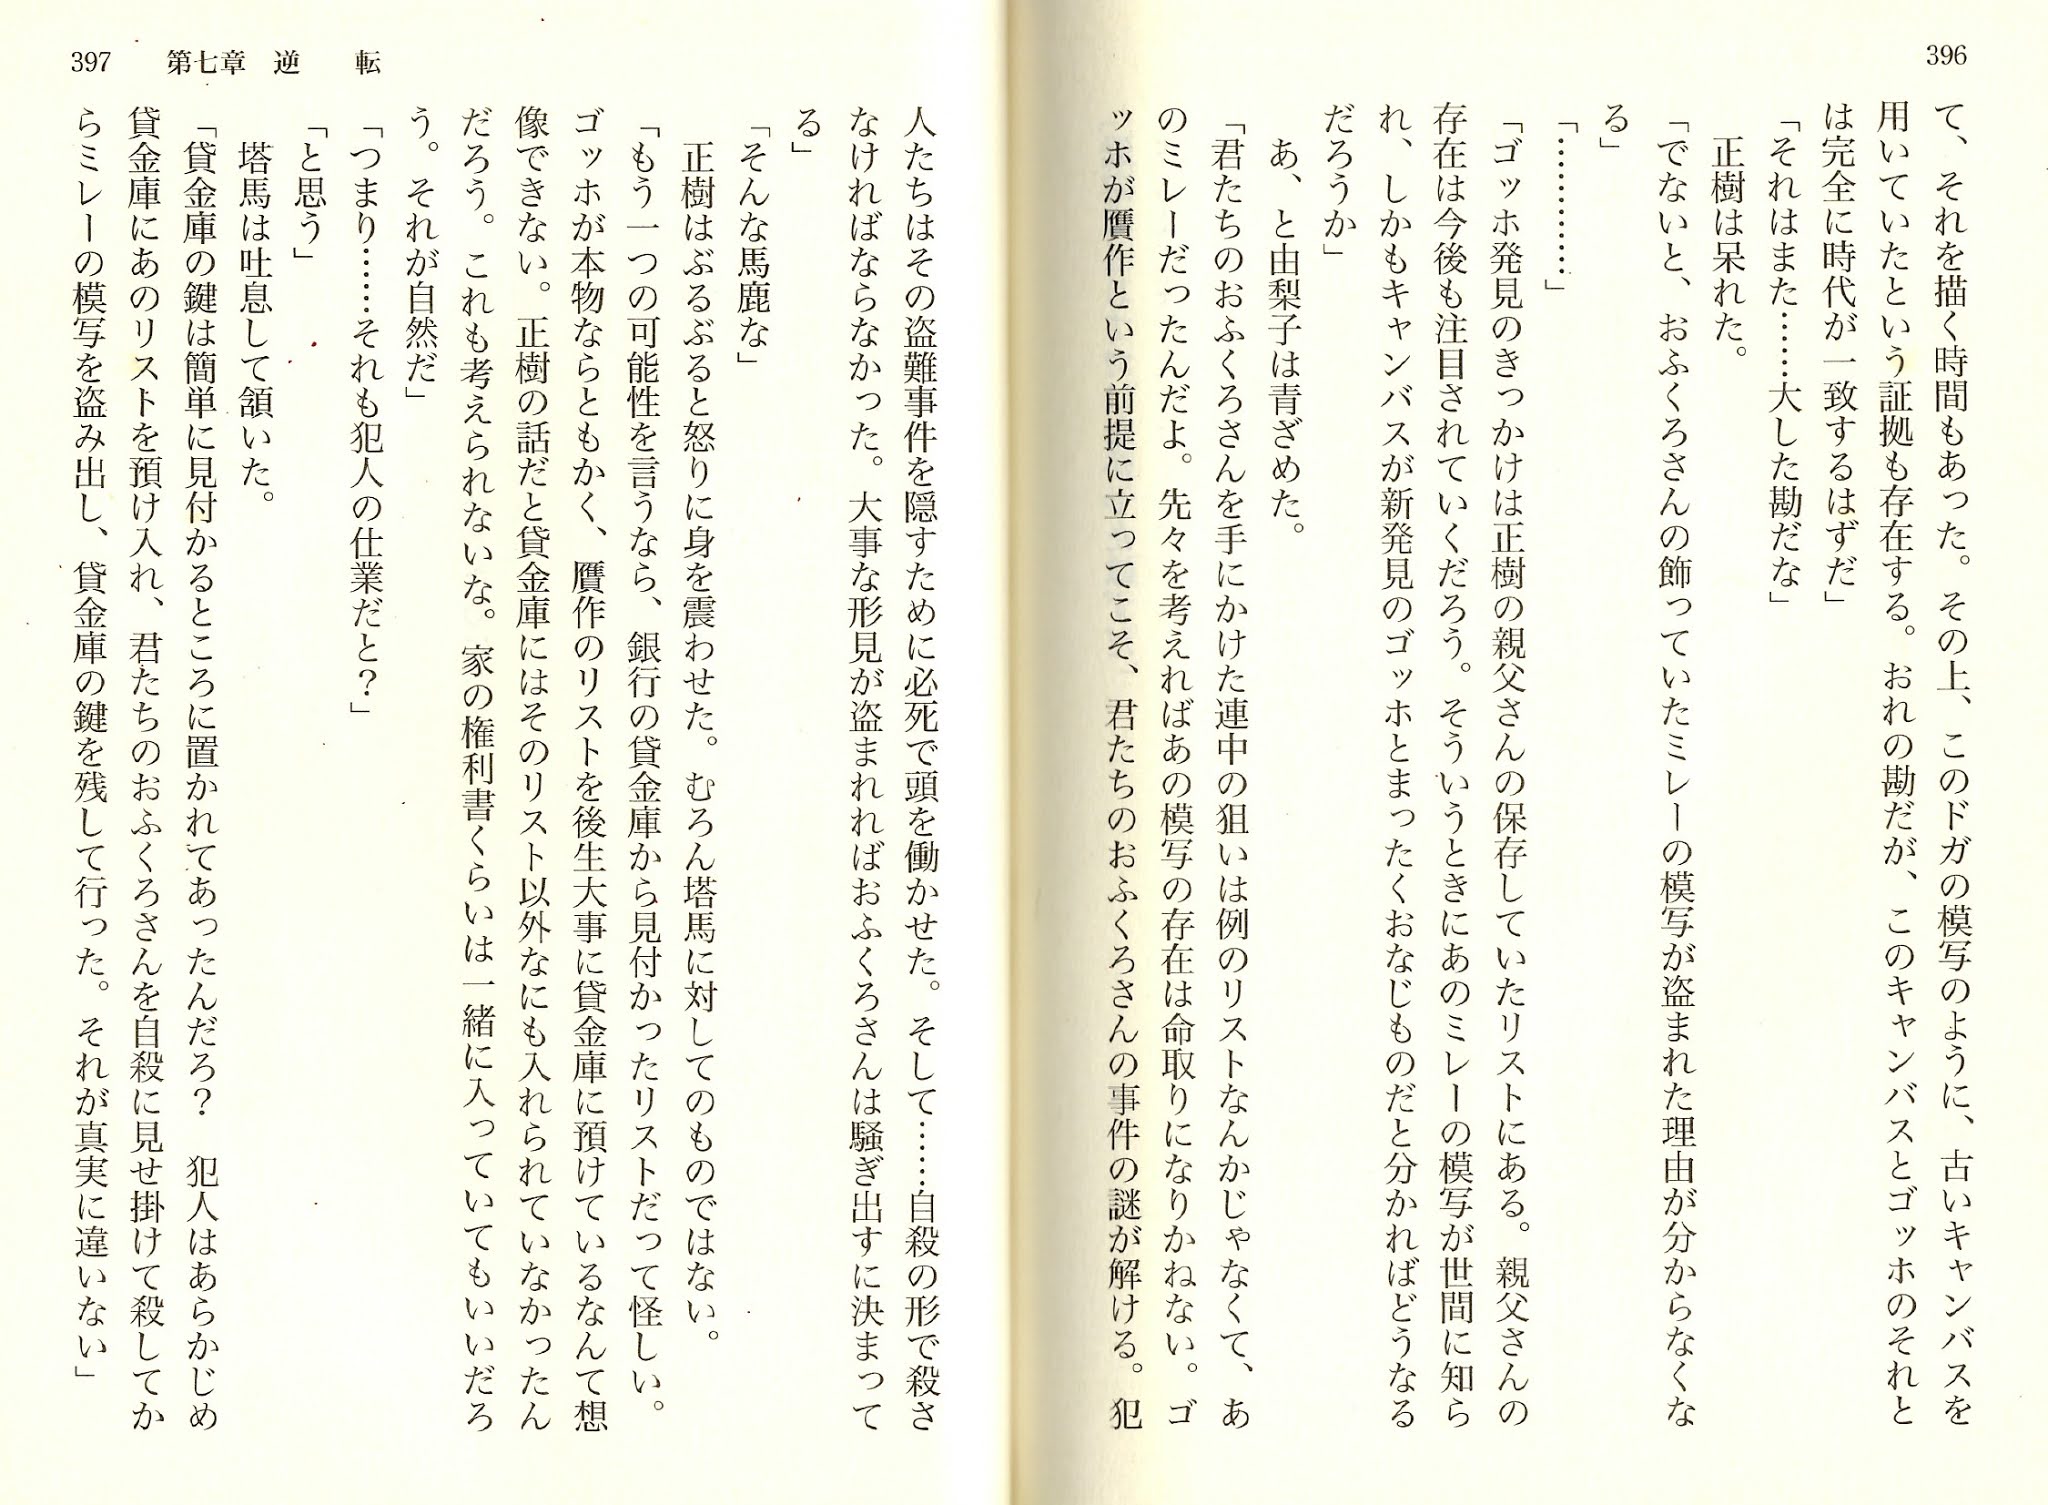 396
て、それを描く時間もあった。その上、このドガの模写のように、古いキャンバスを
用いていたという証拠も存在する。おれの勘だが、このキャンバスとゴッホのそれと
は完全に時代が一致するはずだ」
「それはまた……大した勘だな」
正樹は呆れた。
「でないと、おふくろさんの飾っていたミレーの模写が盗まれた理由が分からなくな
る」
「…………」
「ゴッホ発見のきっかけは正樹の親父さんの保存していたリストにある。親父さんの
存在は今後も注目されていくだろう。そういうときにあのミレーの模写が世間に知ら
れ、しかもキャンバスが新発見のゴッホとまったくおなじものだと分かればどうなる
だろうか」
あ、と由梨子は青ざめた。
「君たちのおふくろさんを手にかけた連中の狙いは例のリストなんかじゃなくて、あ
のミレーだったんだよ。先々を考えればあの模写の存在は命取りになりかねない。ゴ
ッホが贋作という前提に立ってこそ、君たちのおふくろさんの事件の謎が解ける。犯
397 第七章 逆 転
人たちはその盗難事件を隠すために必死で頭を働かせた。そして……自殺の形で殺さ
なければならなかった。大事な形見が盗まれればおふくろさんは騒ぎ出すに決まって
る」
「そんな馬鹿な」
正樹はぶるぶると怒りに身を震わせた。むろん塔馬に対してのものではない。
「もう一つの可能性を言うなら、銀行の貸金庫から見付かったリストだって怪しい。
ゴッホが本物ならともかく、贋作のリストを後生大事に貸金庫に預けているなんて想
像できない。正樹の話だと貸金庫にはそのリスト以外なにも入れられていなかったん
だろう。これも考えられないな。家の権利書くらいは一緒に入っていてもいいだろ
う。それが自然だ」
「つまり……それも犯人の仕業だと？」
「と思う」
塔馬は吐息して頷いた。
「貸金庫の鍵は簡単に見付かるところに置かれてあったんだろ？　犯人はあらかじめ
貸金庫にあのリストを預け入れ、君たちのおふくろさんを自殺に見せ掛けて殺してか
らミレーの模写を盗み出し、貸金庫の鍵を残して行った。それが真実に違いない」